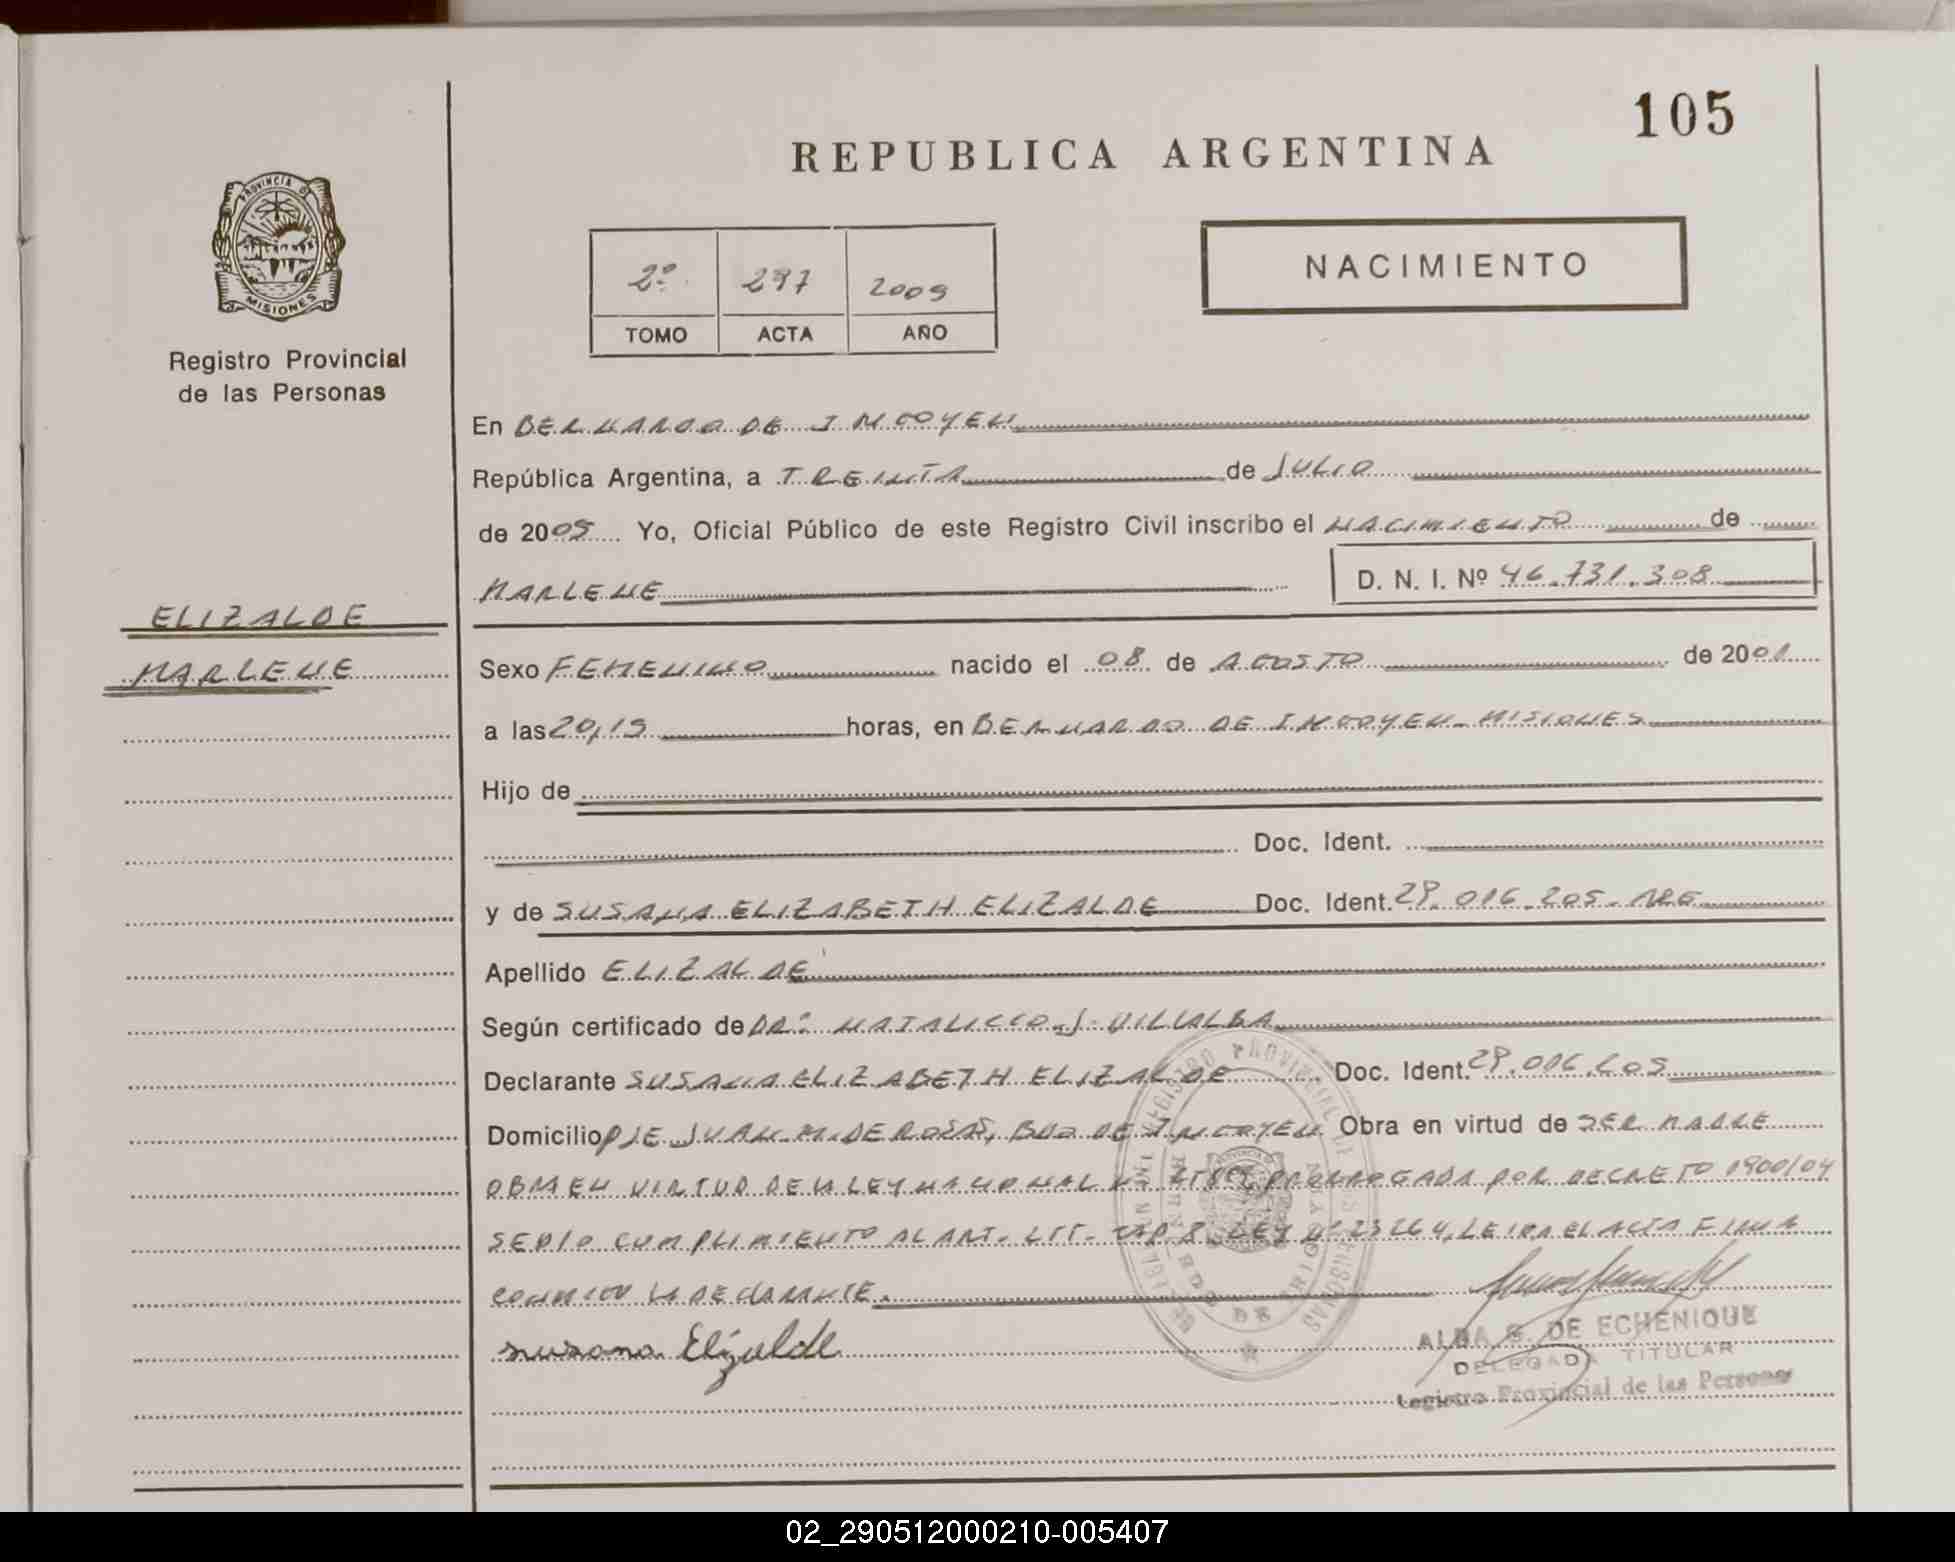 105
REPUBLICA ARGENTINA
PROVINCIA DE
MISIONES
Registro Provincial
de las Personas
2º 297 2009
TOMO ACTA AÑO
NACIMIENTO
En BERNARDO DE IRIGOYEN
República Argentina, a TREINTA de JULIO
de 2009 Yo, Oficial Público de este Registro Civil inscribo el NACIMIENTO de
MARLENE D. N. I. Nº 46.731.308
ELIZALDE
MARLENE
Sexo FEMENINO nacido el 08 de AGOSTO de 2001
a las 20,15 horas, en BERNARDO DE IRIGOYEN - MISIONES
Hijo de
Doc. Ident.
y de SUSANA ELIZABETH ELIZALDE Doc. Ident. 29.016.205 - ARG
Apellido ELIZALDE
Según certificado de DRº NATALICIO J. VILLALBA
Declarante SUSANA ELIZABETH ELIZALDE Doc. Ident. 29.016.205
Domicilio PJE JUAN M. DE ROSAS, BDO DE IRIGOYEN Obra en virtud de SER MADRE
OBRA EN VIRTUD DE LA LEY NACIONAL Nº PRORROGADA POR DECRETO 1900/04
SE DIO CUMPLIMIENTO AL ART. CAP LEY Nº 23264, LEIDA EL ACTA FIRMA
CONMIGO LA DECLARANTE.
Susana Elizalde
ALBA G. DE ECHENIQUE
DELEGADA TITULAR
Registro Provincial de las Personas
02_290512000210-005407